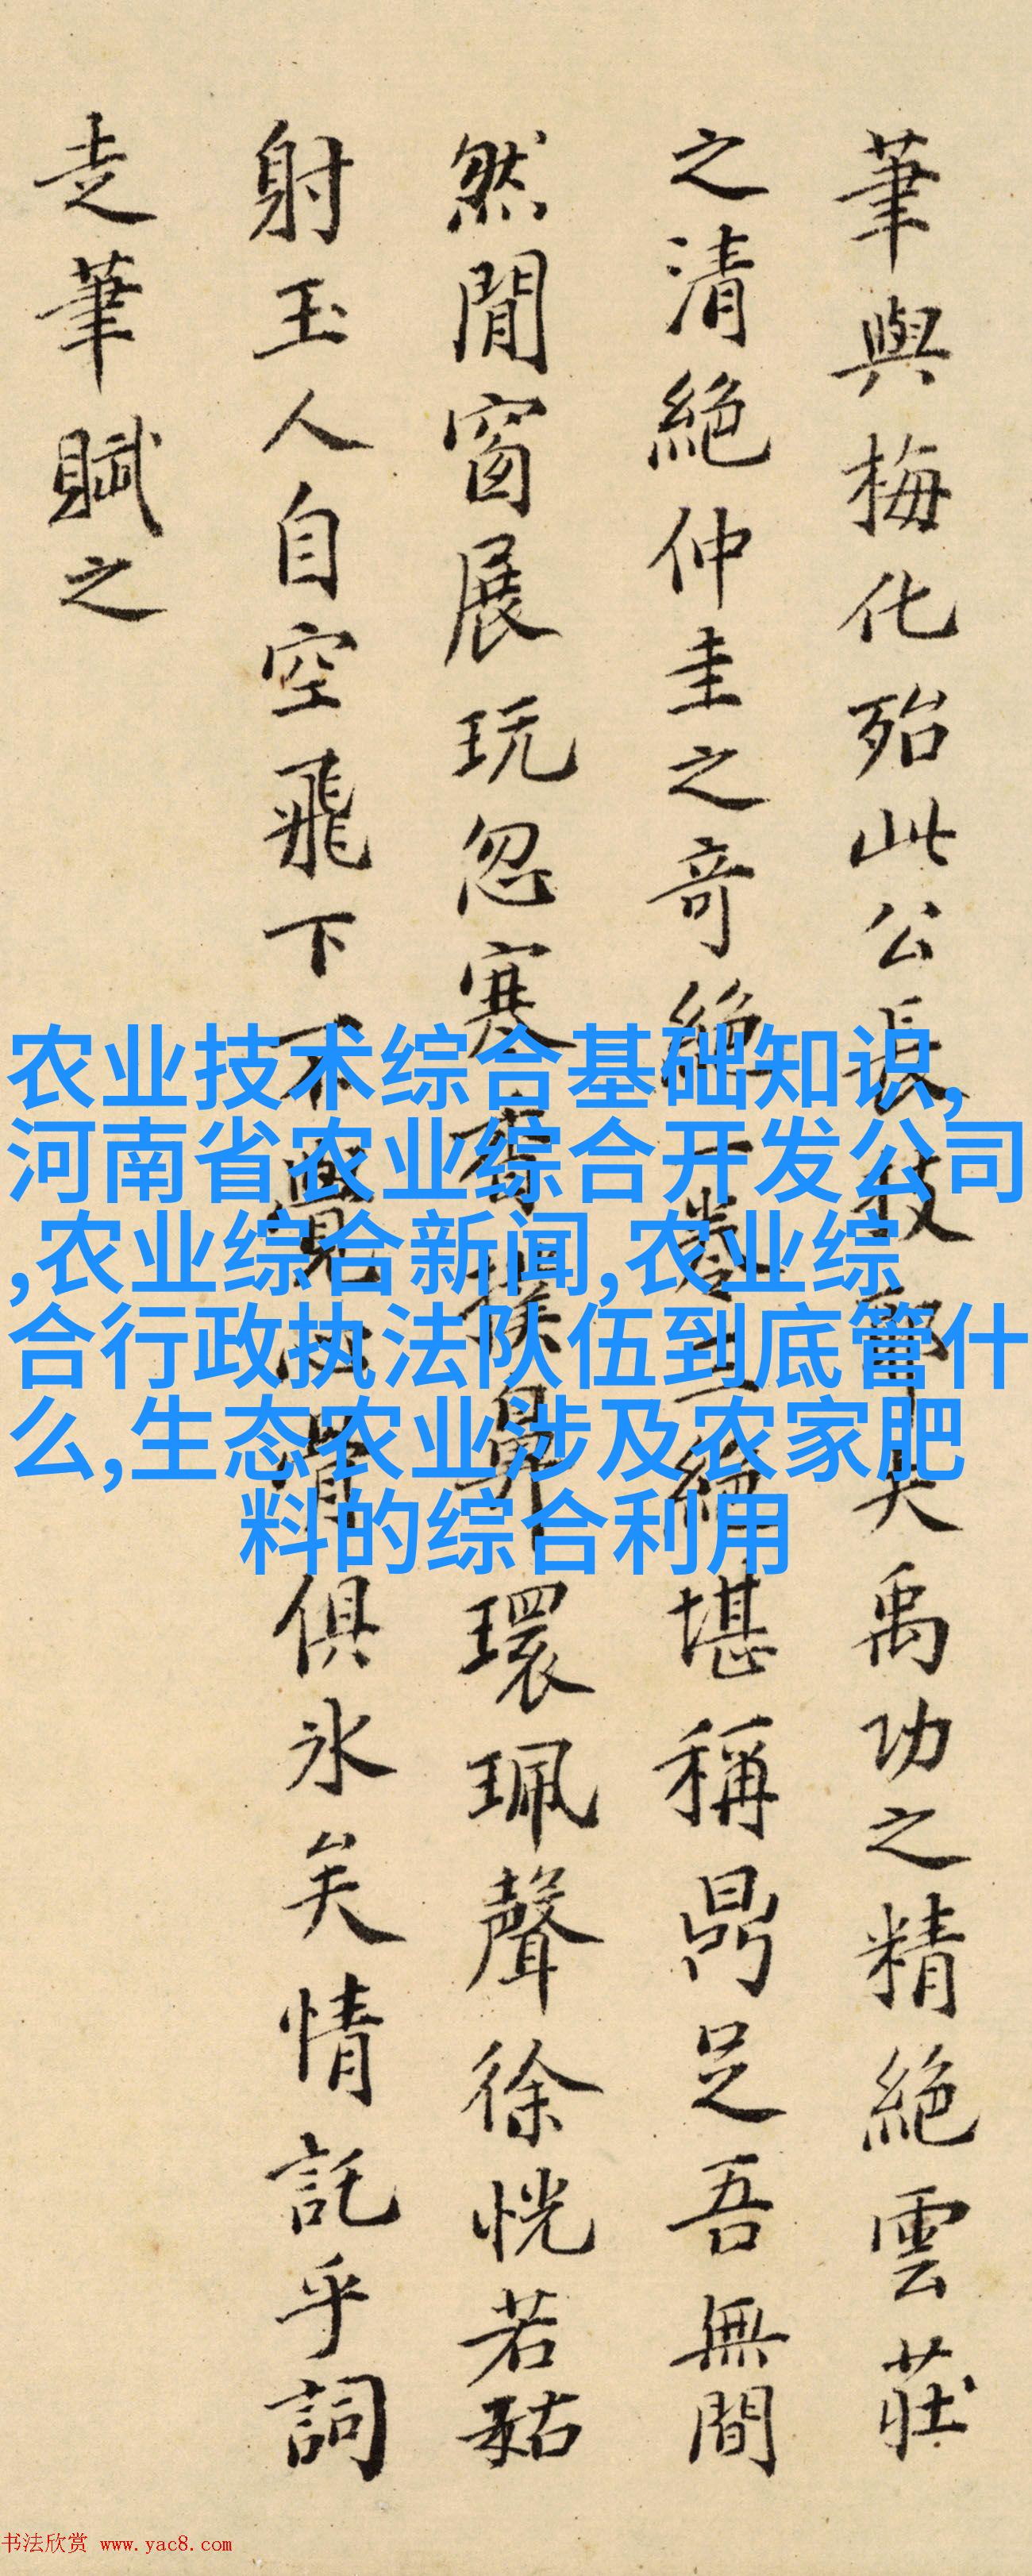 筆與梅化殆此公長技耶夫禹功之精絕雲莊
之清絕仲圭之奇絕一卷三絕堪稱鼎足吾無間
然閒窗展玩忽寒香撲鼻環珮聲徐恍若
射玉人自空飛下不覺心骨俱冰矣情託乎詞
走筆賦之
农业技术综合基础知识,
河南省农业综合开发公司
,农业综合新闻,农业综
合行政执法队伍到底管什
么,生态农业涉及农家肥
料的综合利用
书法欣赏 www.yac8.com